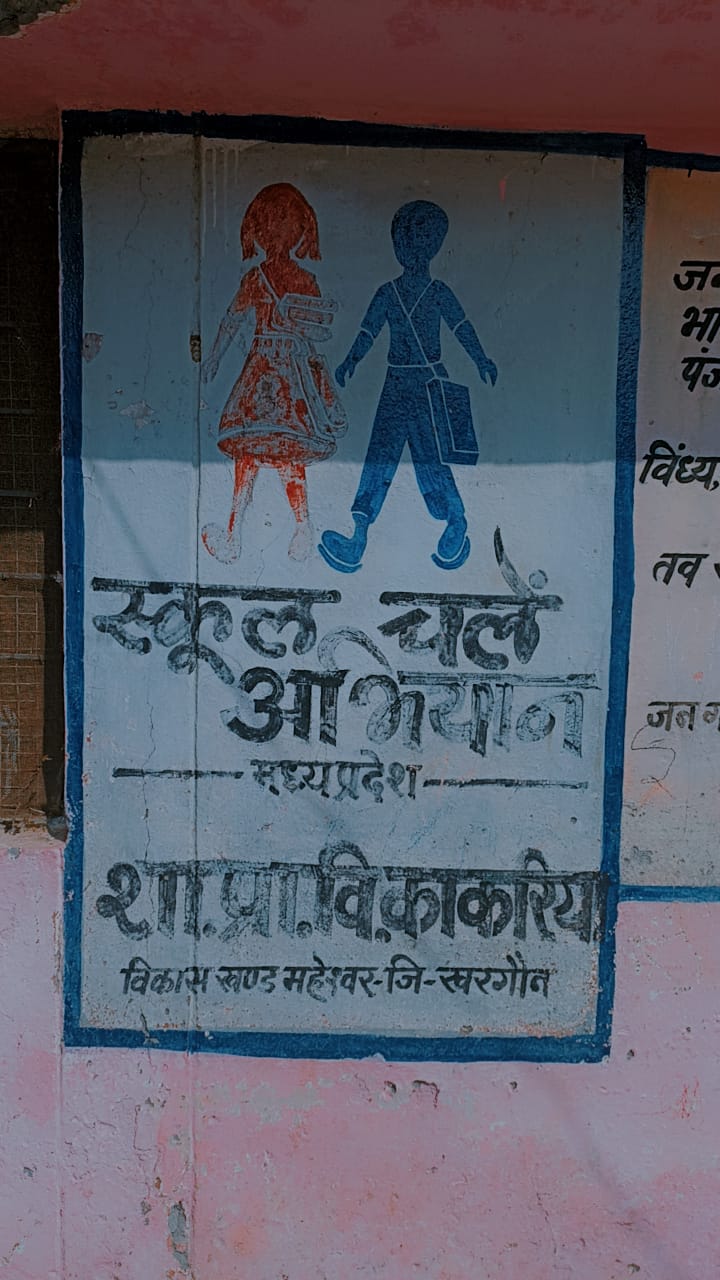 स्कूल चलें
अभियान
मध्यप्रदेश
शा.प्रा.वि.काकरिया
विकास खण्ड महेश्वर-जि-खरगौन
भा
विंध्य,
तव
जन ग